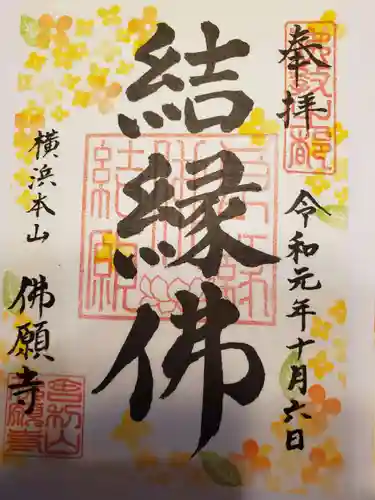 奉拝
令和元年十月六日
結縁佛
横浜本山
佛願寺